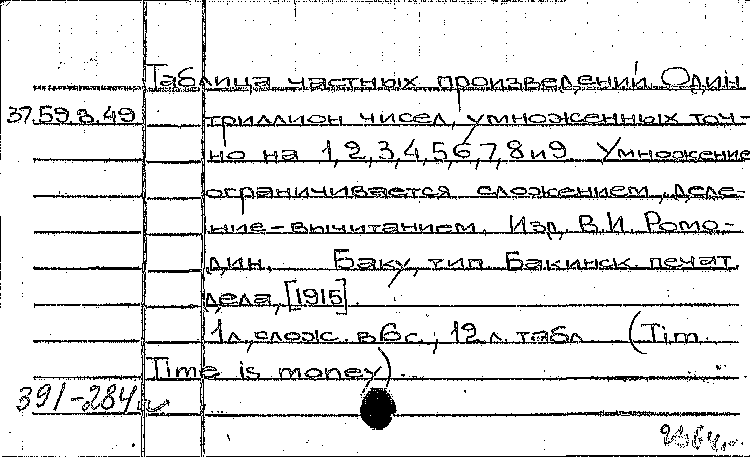 Таблица частных произведений. Один
37.59.3.49 триллион чисел, умноженных точ-
но на 1,2,3,4,5,6,7,8 и 9. Умножение
ограничивается сложением, деле-
ние-вычитанием. Изд. В.И. Ромо-
дин. Баку, тип. Бакинск. печат.
дела, [1915].
1 л., слож. в 6 с., 12 л. табл. (Tim.
Time is money).
391-284